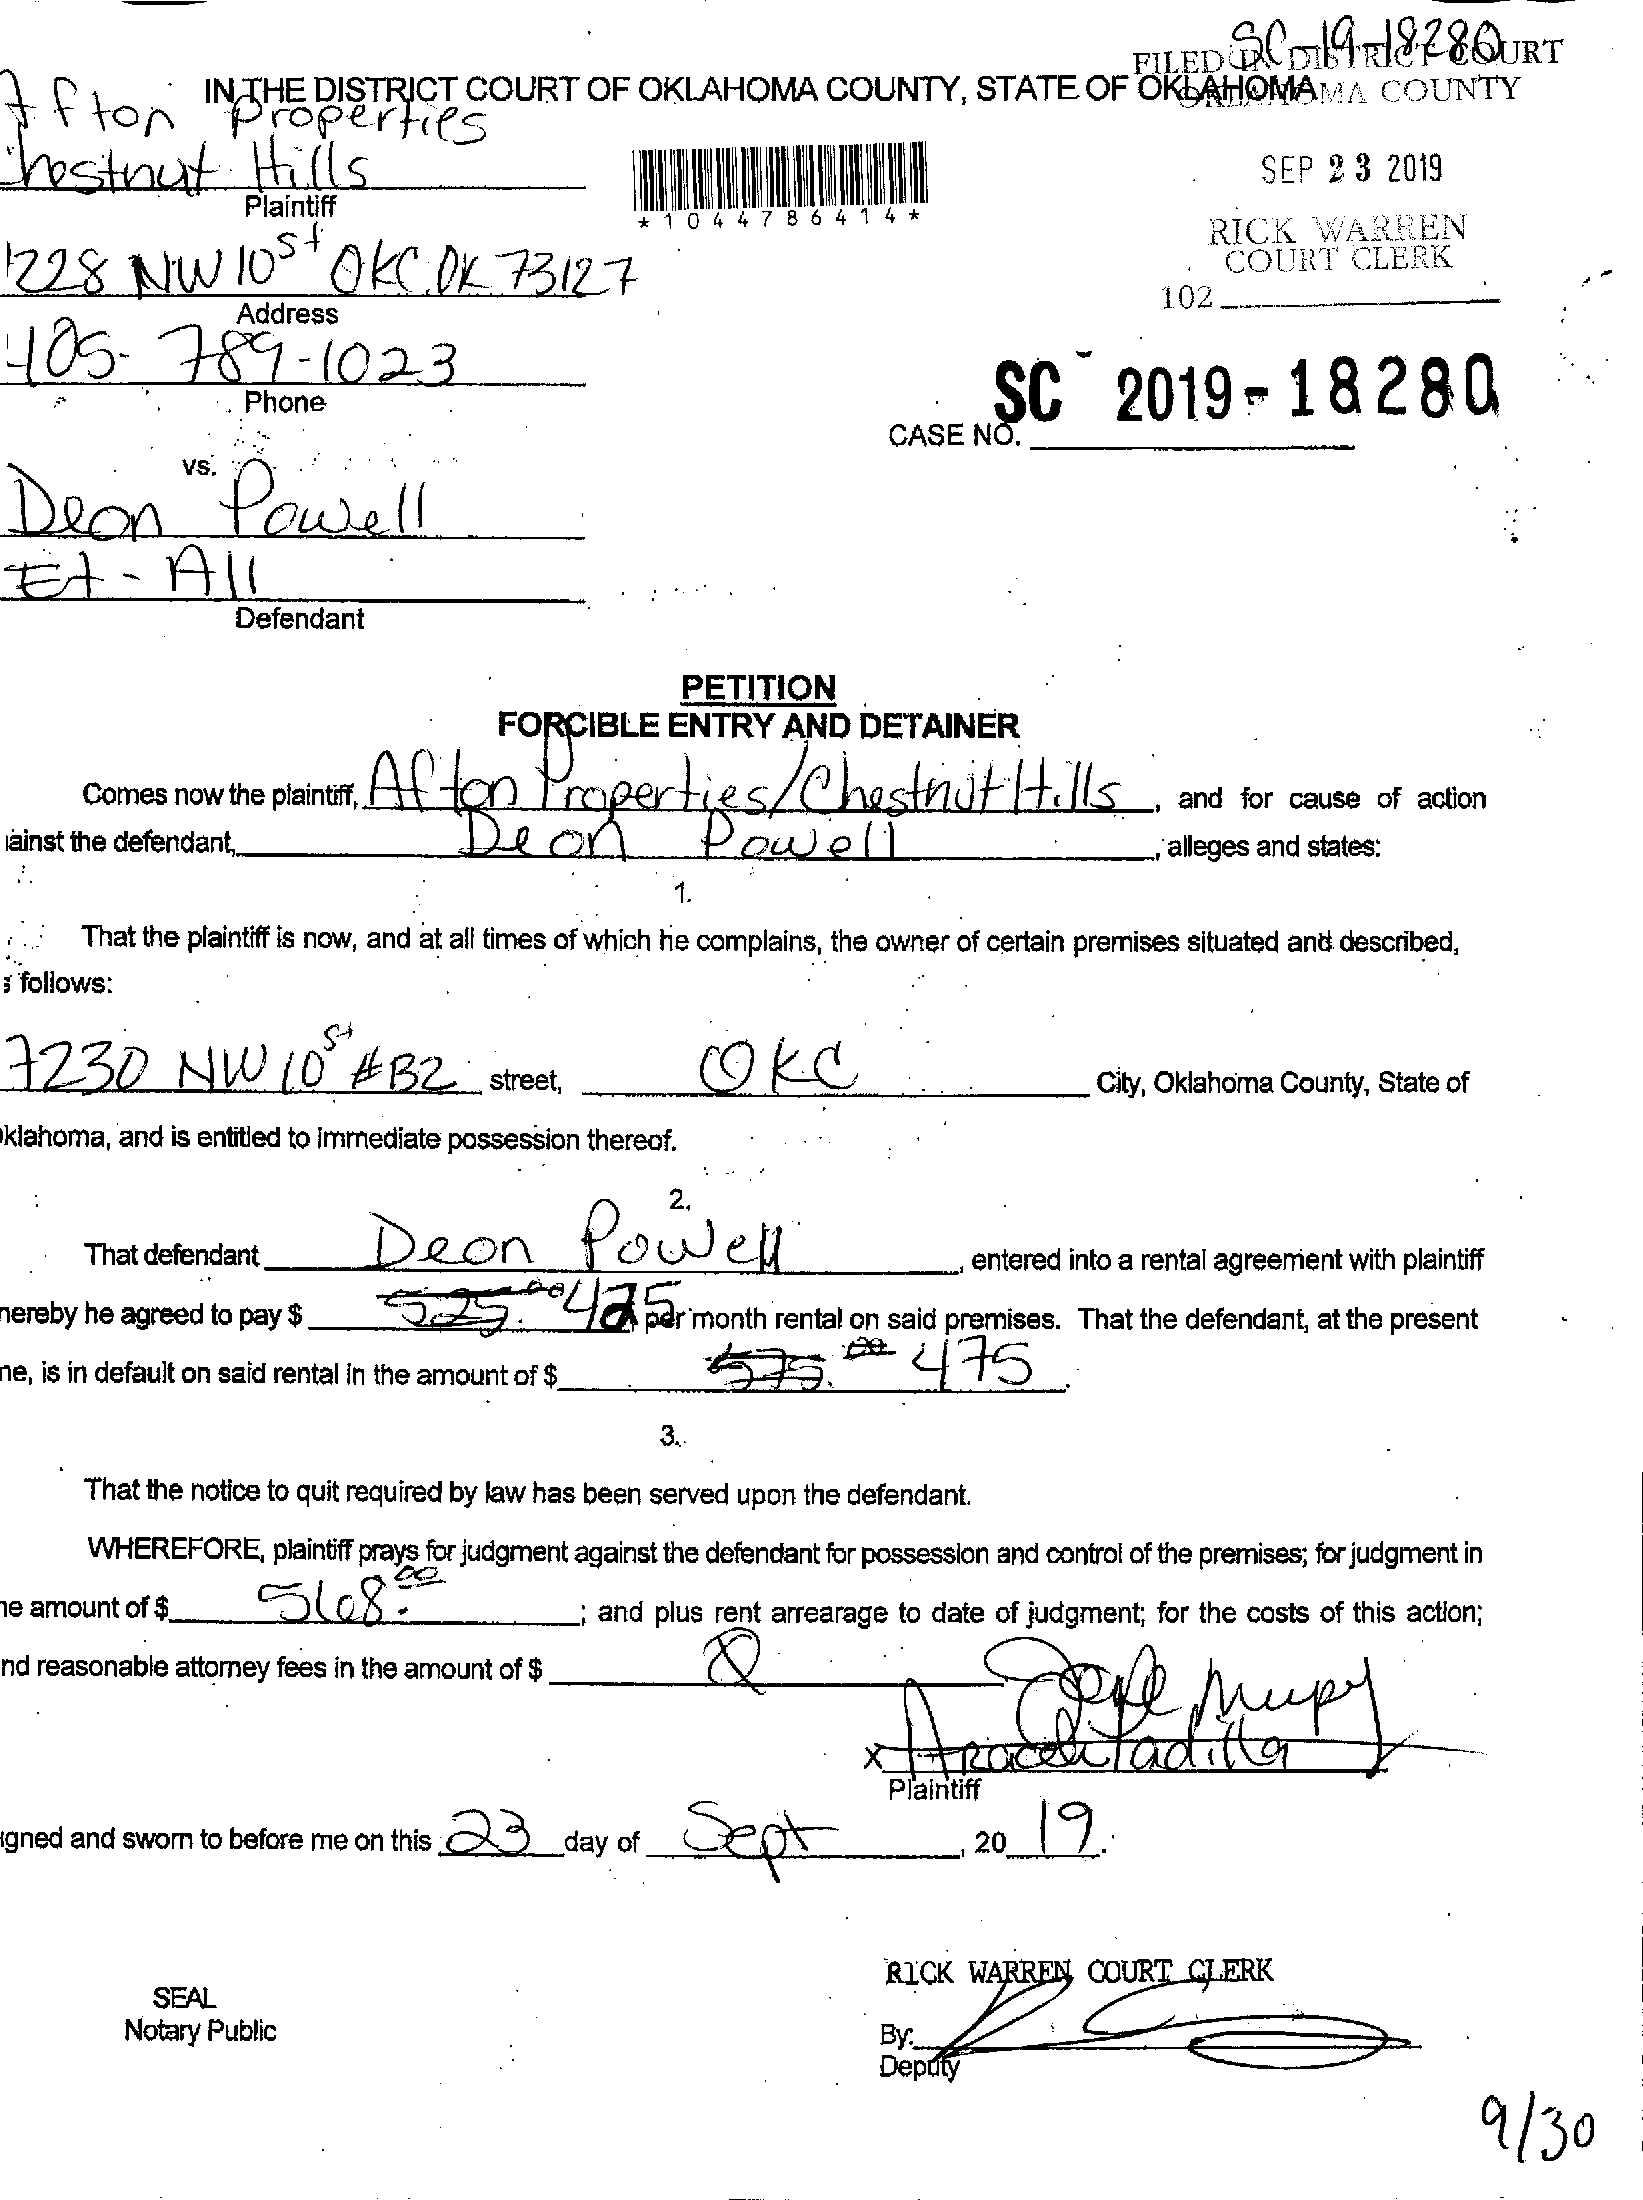 SC-19-18280
FILED IN DISTRICT COURT
OKLAHOMA COUNTY
IN THE DISTRICT COURT OF OKLAHOMA COUNTY, STATE OF OKLAHOMA
Afton Properties
Chestnut Hills
Plaintiff
*1044786414*
SEP 23 2019
RICK WARREN
COURT CLERK
102
228 NW 10st OKC OK 73127
Address
405-789-1023
Phone
SC 2019-18280
CASE NO.
vs.
Deon Powell
Et-All
Defendant
PETITION
FORCIBLE ENTRY AND DETAINER
Comes now the plaintiff, Afton Properties/Chestnut Hills, and for cause of action
ainst the defendant, Deon Powell, alleges and states:
1.
That the plaintiff is now, and at all times of which he complains, the owner of certain premises situated and described,
s follows:
7230 NW 10st #B2 street, OKC City, Oklahoma County, State of
klahoma, and is entitled to immediate possession thereof.
2.
That defendant Deon Powell, entered into a rental agreement with plaintiff
hereby he agreed to pay $ 525.00 475 per month rental on said premises. That the defendant, at the present
me, is in default on said rental in the amount of $ 575.00 475.
3.
That the notice to quit required by law has been served upon the defendant.
WHEREFORE, plaintiff prays for judgment against the defendant for possession and control of the premises; for judgment in
he amount of $ 568.00; and plus rent arrearage to date of judgment; for the costs of this action;
nd reasonable attorney fees in the amount of $
x Araceli Padilla
Plaintiff
igned and sworn to before me on this 23 day of Sept, 20 19.
RICK WARREN COURT CLERK
SEAL
Notary Public
By:
Deputy
9/30